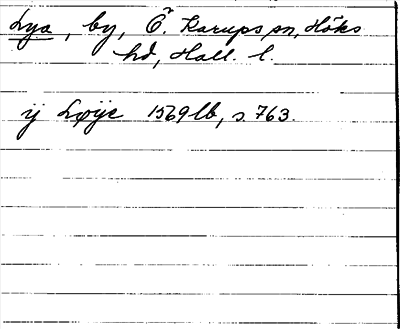 Lya, by, Ö. Karups sn, Höks
hd, Hall. l.
ij Løije 1569 lb, s. 763.